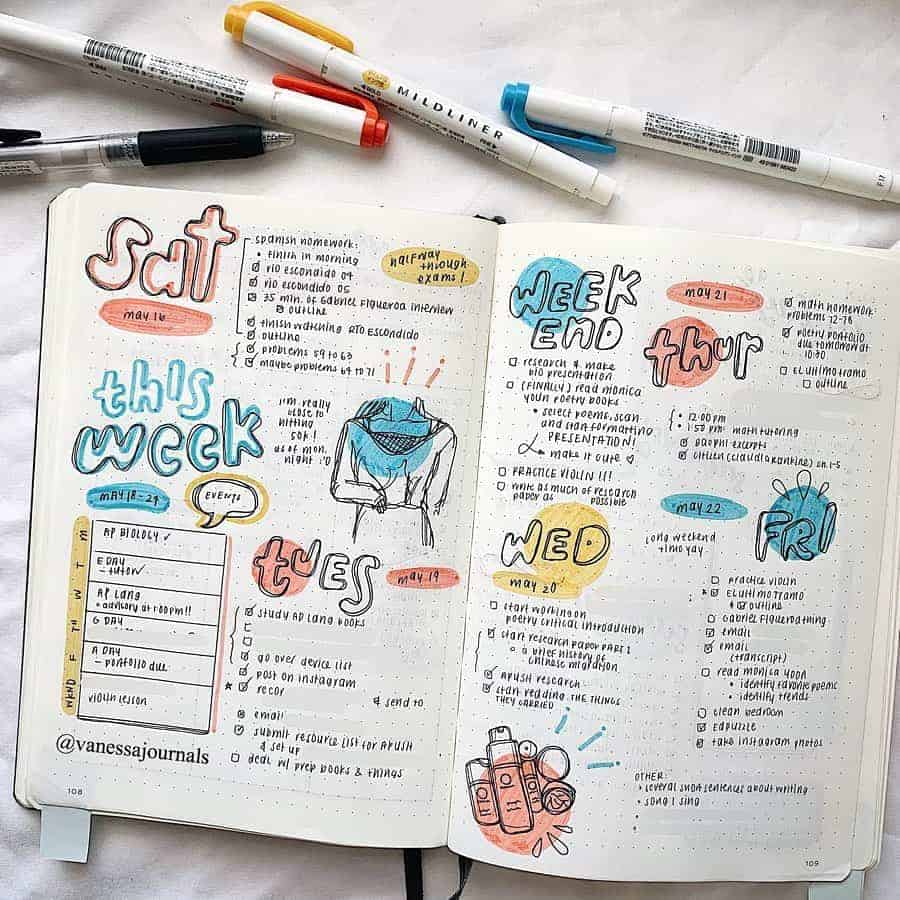 MILDLINER
sat
may 16
spanish homework:
finish in morning
rio escondido 04
rio escondido 05
35 min. of Gabriel Figueroa interview
outline
finish watching RIO ESCONDIDO
outline
problems 59 to 63
maybe problems 64 to 71
halfway
through
exams!
this
week
MAY 18-24
EVENTS
i'm really
close to
hitting
50k!
as of mon.
night :'D
M
T
W
TH
F
WKND
AP BIOLOGY ✓
E DAY
- tutor ✓
AP Lang
advisory at 1:00pm!!
G DAY
A DAY
- portfolio due
violin lesson
@vanessajournals
108
tues
may 19
study AP Lang books
go over device list
post on instagram
recor
& send to
email
submit resource list for APUSH
& set up
deal w/ prep books & things
WEEK
END
research & make
bio presentation
(FINALLY) read monica
youn poetry books
select poems, scan
and start formatting
PRESENTATION!
make it cute ♡
PRACTICE VIOLIN !!!
write as much of research
paper as possible
WED
may 20
start working on
poetry critical introduction
start research paper PART 1
a brief history of
chinese migration
APUSH research
start reading THE THINGS
THEY CARRIED
may 21
thur
math homework
problems 72-78
poetry portfolio
due tomorrow at
10:30
EL ULTIMO TRAMO
outline
12:00 pm
1:50 pm: math tutoring
citizen (claudia rankine) ch. 1-5
may 22
FRI
long weekend
practice violin
EL ULTIMO TRAMO
outline
Gabriel Figueroa thing
email
email
(transcript)
read monica youn
identify favorite poems
identify trends
clean bedroom
edpuzzle
take instagram photos
OTHER:
several short sentences about writing
song I sing
109